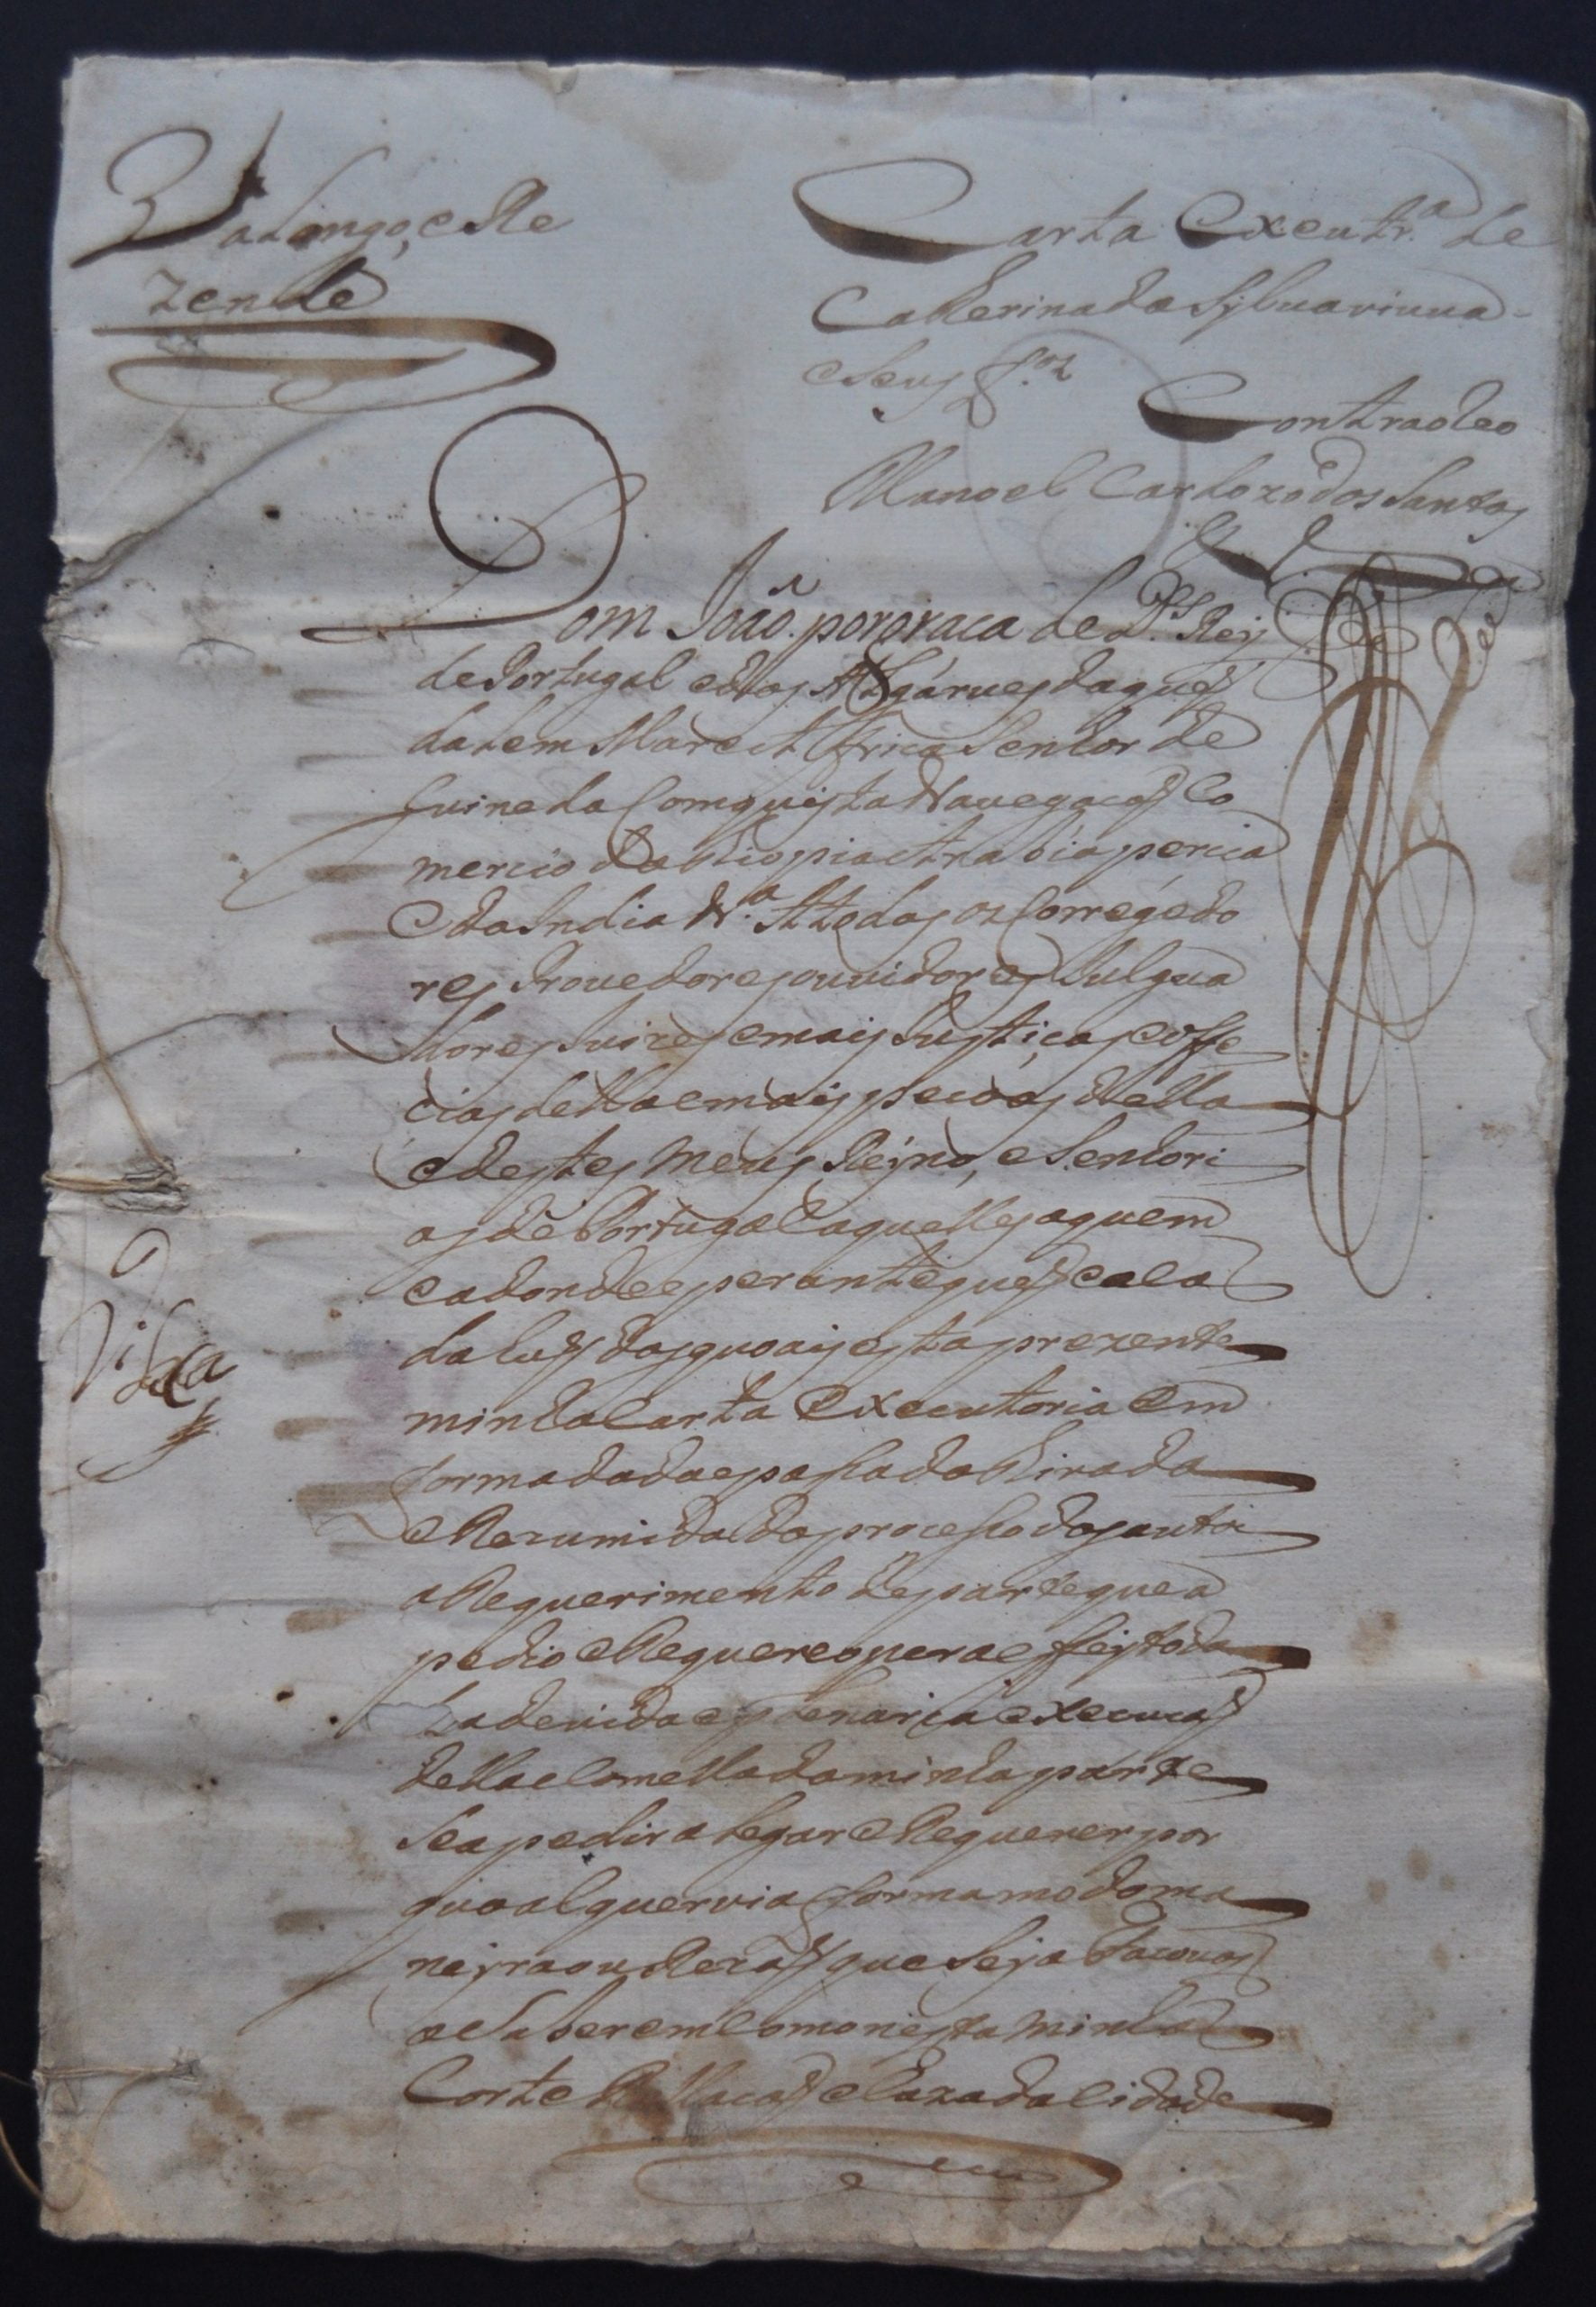 Valongo, e Re
zende
Carta Executr.ª de
Catherina da Sylva viuva
e seus f.os
Contra o Leo
Manoel Cardozo dos Santos
Dom João por graca de D.s Rey
de Portugal e dos Algarues daquem
dalem Mar em Affrica Senhor de
Guine da Comquista Nauegacaõ Co
mercio da Ethiopia Arabia percia
e da India &.ª A todos os Corregedo
res Prouedores ouuidores Julgua
dores Juizes e mais Justiças e offe
ciais della e mais pecoas della
e destes meus Reynos, e Senhori
os de Portugal aquelles a quem
e adonde e perante quem e a ca
da hum dos quoais esta prezente
minha Carta Executoria em
forma dada e passada tirada
e Rezumida do processo dos autos
a Requerimento de parte que a
pedio e Requereo pera effeyto da
sua deuida e plenaria execucaõ
della e Com ella da minha parte
se apedir alegar e Requerer por
quoalquer via forma modo ma
neyra ou Rezaõ que seja Facouos
a saber em Como nesta minha
Corte e Rellacaõ e Caza da Cidade
Vista